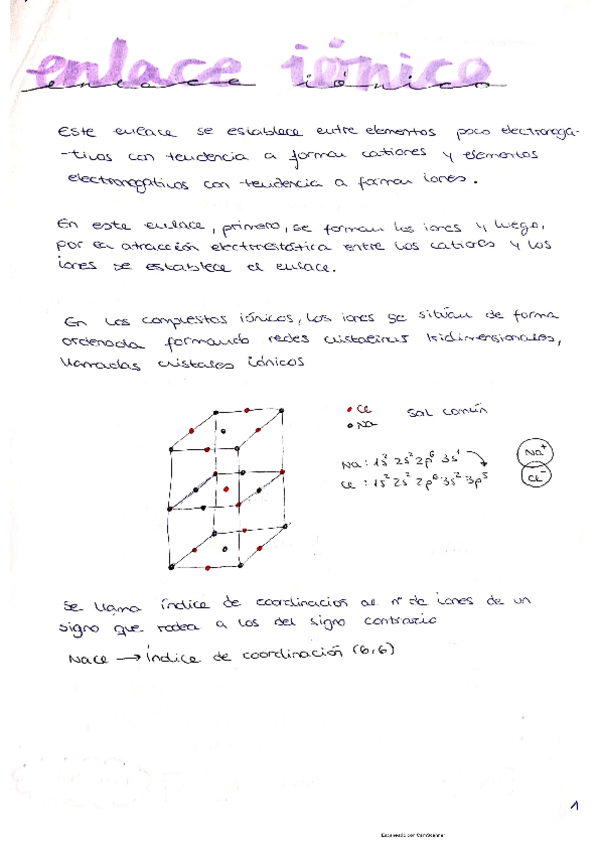 enlace iónico
enlace iónico
Este enlace se establece entre elementos poco electronega-
-tivos con tendencia a formar cationes y elementos
electronegativos con tendencia a formar iones.
En este enlace, primero, se forman los iones y luego,
por la atracción electrostática entre los cationes y los
iones se establece el enlace.
En los compuestos iónicos, los iones se sitúan de forma
ordenada formando redes cristalinas tridimensionales,
llamadas cristales iónicos
Cl
Na
sal común
Na: 1s² 2s² 2p⁶ 3s¹
Cl: 1s² 2s² 2p⁶ 3s² 3p⁵
Na⁺
Cl⁻
Se llama índice de coordinación al nº de iones de un
signo que rodea a los del signo contrario
NaCl → índice de coordinación (6,6)
1
Escaneado con CamScanner